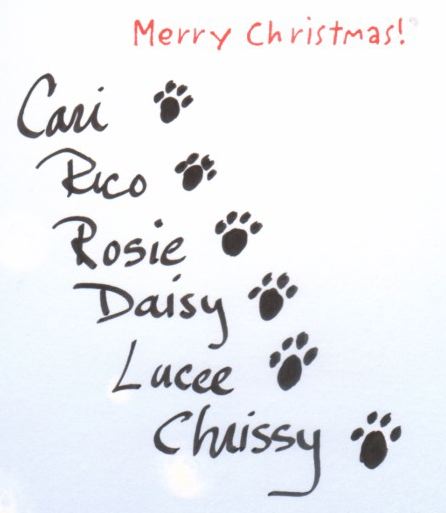 Merry Christmas!
Cari
Rico
Rosie
Daisy
Lucee
Chrissy